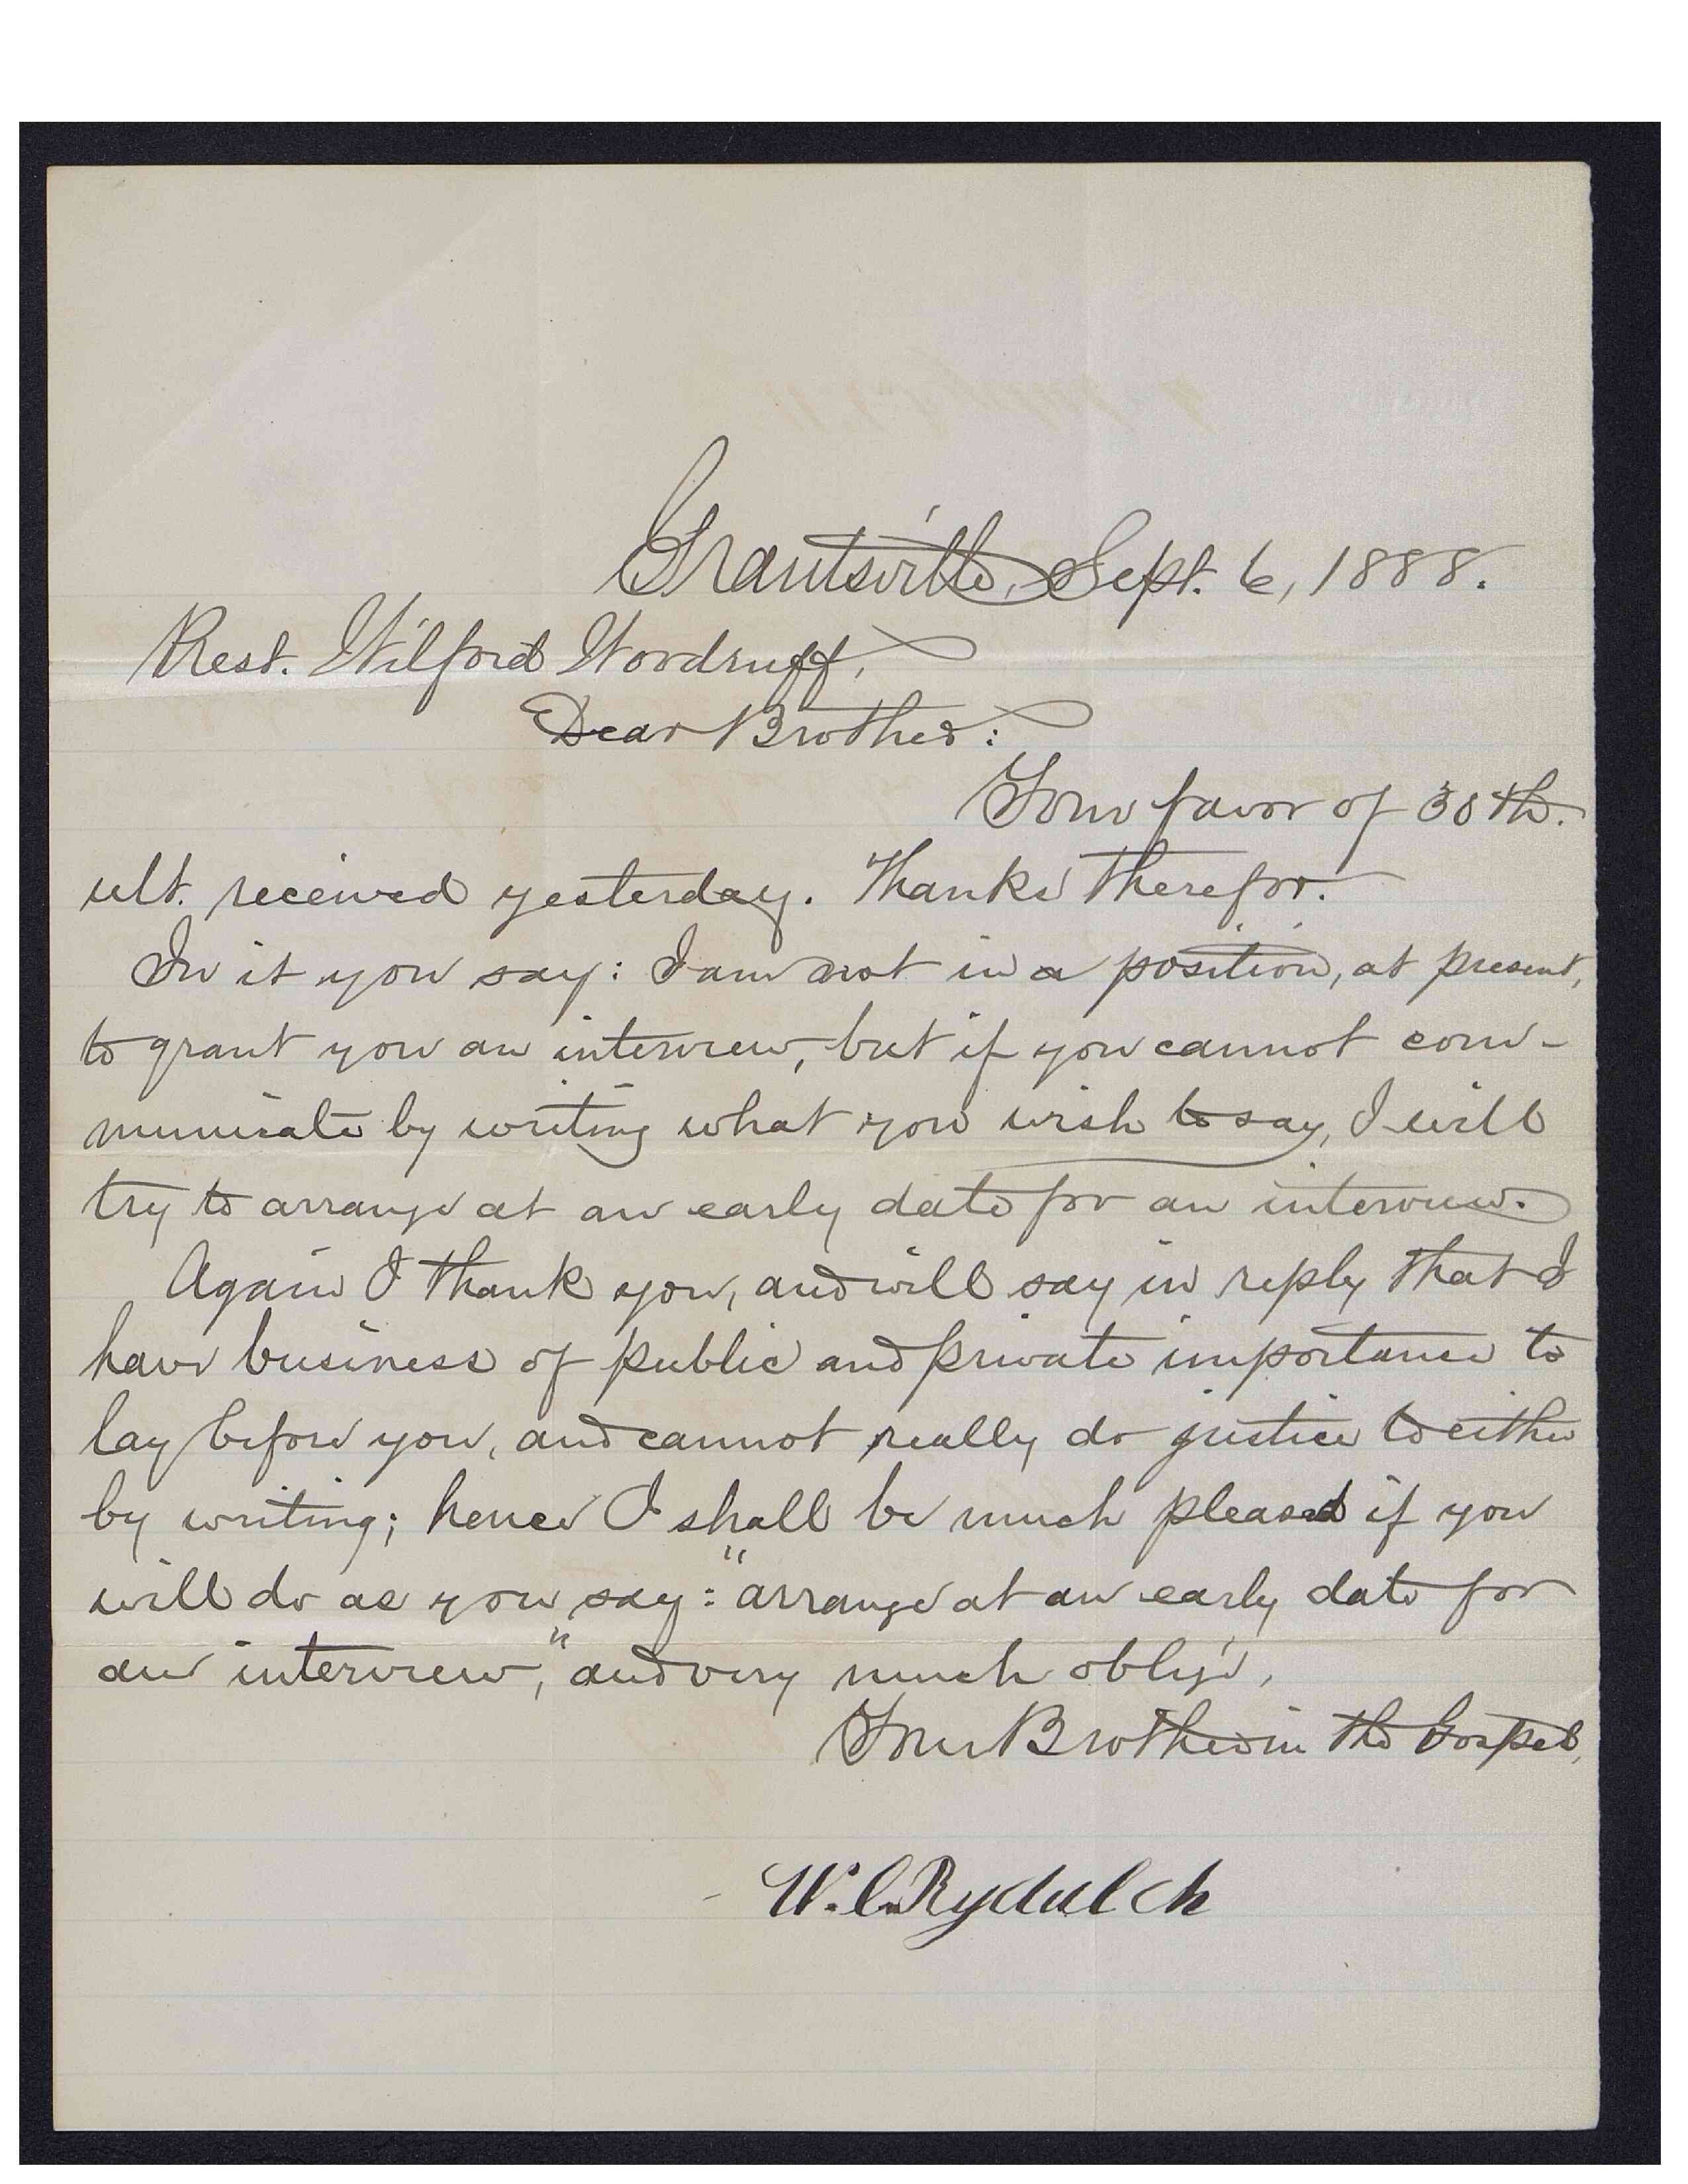 Grantsville, Sept. 6, 1888.
Prest. Wilford Woodruff,
Dear Brother:
Your favor of 30th.
ult. received yesterday. Thanks therefor.
In it you say: I am not in a position, at present,
to grant you an interview, but if you cannot com-
municate by writing what you wish to say, I will
try to arrange at an early date for an interview.
Again I thank you, and will say in reply that I
have business of public and private importance to
lay before you, and cannot really do justice to either
by writing; hence I shall be much pleased if you
will do as you say: "arrange at an early date for
an interview," and very much oblige,
Your Brother in the Gospel,
W. C. Rydalch